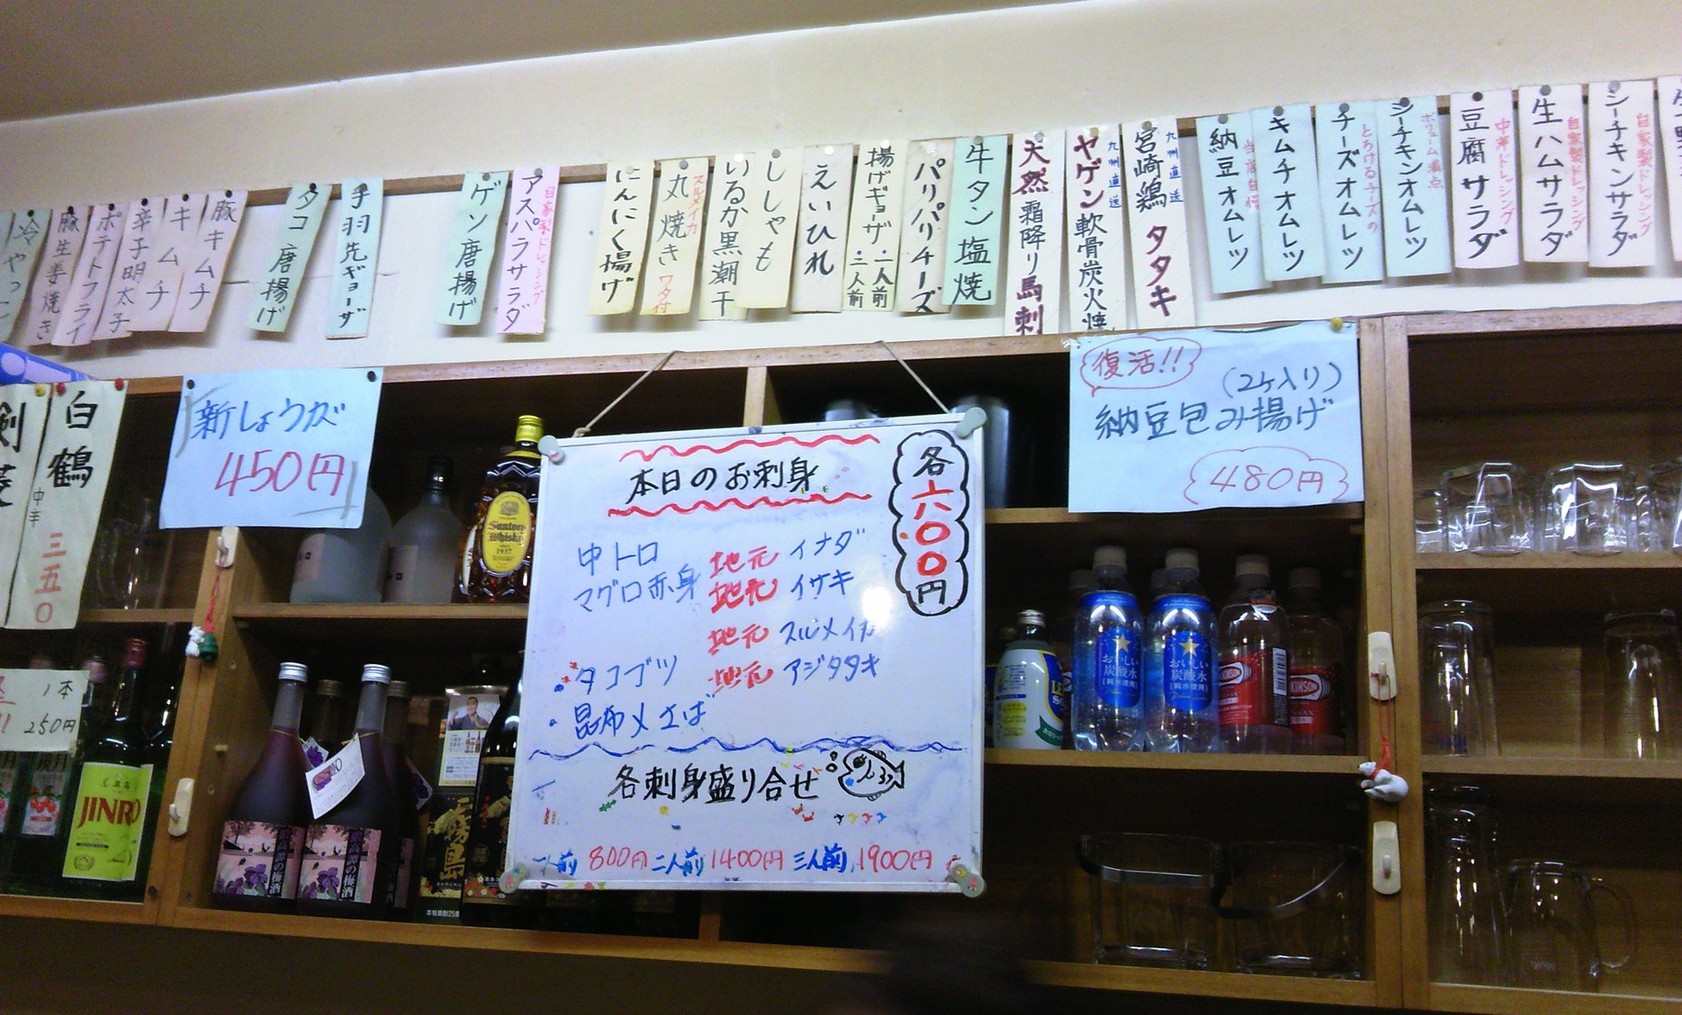 冷やっこ
豚生姜焼き
ポテトフライ
辛子明太子
キムチ
豚キムチ
タコ唐揚げ
手羽先ギョーザ
ゲソ唐揚げ
自家製ドレッシング
アスパラサラダ
にんにく揚げ
スルメイカ
丸焼き
ワタ付
いるか黒潮干
ししゃも
えいひれ
揚げギョーザ
一人前
二人前
パリパリチーズ
牛タン塩焼
天然霜降り馬刺
九州直送
ヤゲン軟骨炭火焼
九州直送
宮崎鶏タタキ
納豆オムレツ
キムチオムレツ
とろけるチーズの
チーズオムレツ
ボリューム満点
シーチキンオムレツ
中華ドレッシング
豆腐サラダ
自家製ドレッシング
生ハムサラダ
自家製ドレッシング
シーチキンサラダ
剣菱
白鶴
中辛
三五〇
1本
250円
新しょうが
450円
復活!!
(2ケ入り)
納豆包み揚げ
480円
本日のお刺身
各六〇〇円
中トロ
地元 イナダ
マグロ赤身
地元 イサキ
地元 スルメイカ
タコブツ
地元 アジタタキ
昆布〆さば
各刺身盛り合せ
一人前 800円 二人前 1400円 三人前 1900円
Suntory
Whisky
1937
おいしい
炭酸水
おいしい
炭酸水
鏡月
JINRO
霧島
の梅酒